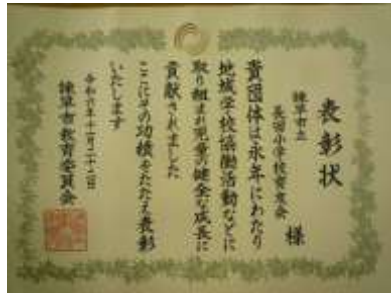 表彰状
諫早市立
長田小学校育友会 様
貴団体は永年にわたり
地域学校協働活動などに
取り組まれ児童の健全な成長に
貢献されました
ここにその功績をたたえ表彰
いたします
令和六年十一月二十二日
諫早市教育委員会